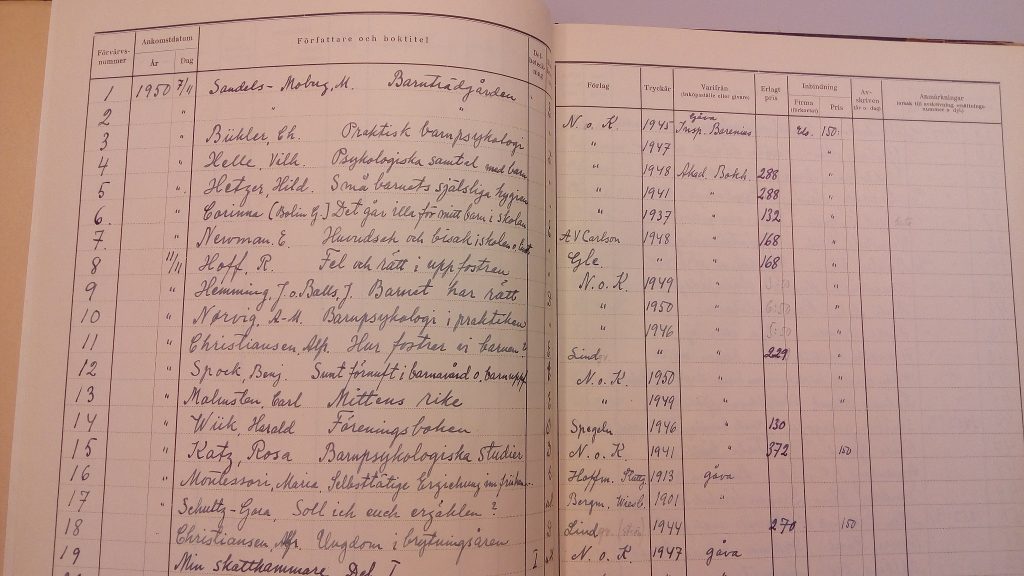 Förvärvs-nummer Ankomstdatum År Dag Författare och boktitel
1 1950 7/11 Sandels-Moberg, M. Barnträdgården
2 " " "
3 " Bühler, Ch. Praktisk barnpsykologi
4 " Helle, Vilh. Psykologiska samtal med barn
5 " Hetzer, Hild. Små barnets själsliga hygien
6. " Corinna (Bolin G.) Det går illa för mitt barn i skolan
7. " Newman. E. Huvudsak och bisak i skolan o.
8 11/11 Hoff, R. Fel och rätt i uppfostran
9 " Hemming, J. o. Balls, J. Barnet har rätt
10 " Nørvig, A-M. Barnpsykologi i praktiken
11 " Christiansen, Alfr. Hur fostrer vi barnen?
12 " Spock, Benj. Sunt förnuft i barnavård o. barnuppf.
13 " Malmsten, Carl Mittens rike
14 " Wiik, Harald Föreningsboken
15 " Katz, Rosa Barnpsykologiska studier
16 " Montessori, Maria. Selbsttätige Erziehung im frühen
17 " Schultz-Gora, Soll ich euch erzählen?
18 Christiansen, Alfr. Ungdom i brytningsåren
19 Min skattkammare Del I I
Förlag Tryckår Varifrån (inköpsställe eller givare) Erlagt pris Inbindning Firma Pris Av-skriven (år o. dag) Anmärkningar
N. o. K. 1945 gåva Insp. Barenius 150:
" 1947 "
" 1948 Akad. Bokh. 288 "
" 1941 " 288 "
" 1937 " 132 "
A V Carlson 1948 " 168 "
Gle. " " 168 "
N. o. K. 1949 " "
" 1950 " "
" 1946 " "
Lind " " 229 "
N. o. K. 1950 " "
" 1949 " "
Spegeln 1946 " 130
N. o. K. 1941 " 372 150
Hoffm. Stuttg 1913 gåva
Bergm. Wiesb. 1901 "
Lind 1944 270 150
N. o. K. 1947 gåva